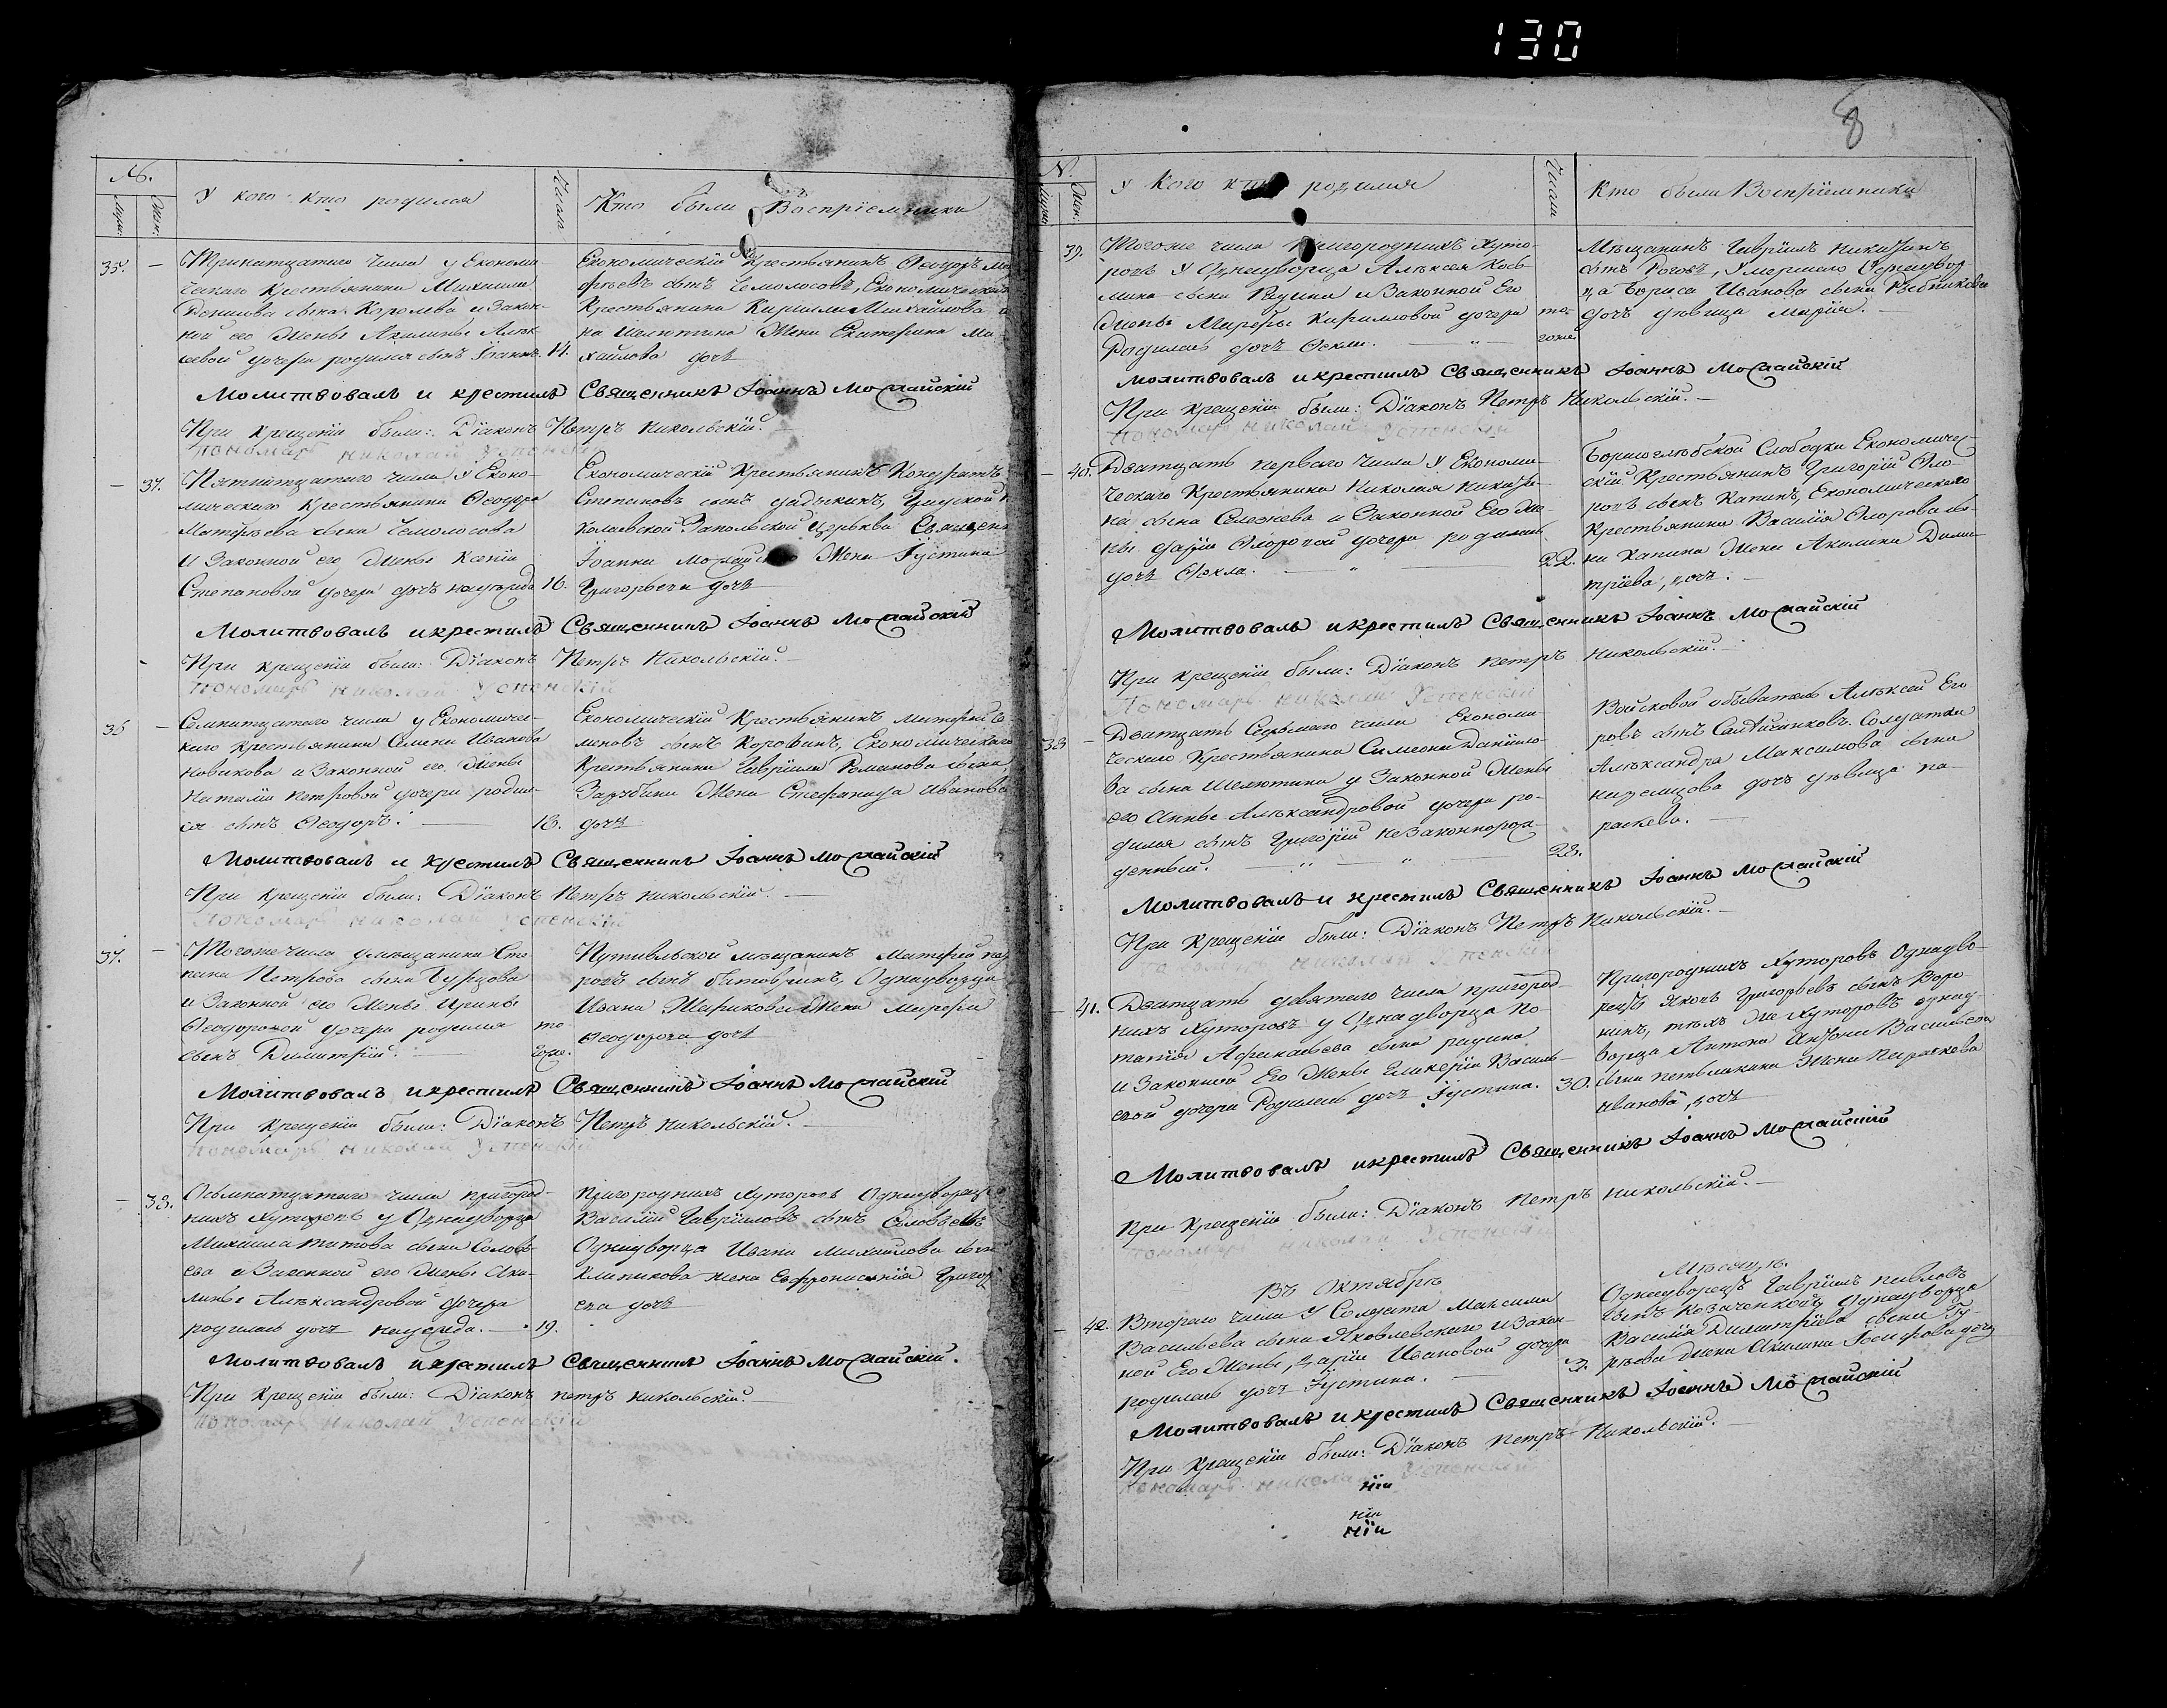 130
8
№.
Муж:
Жен:
У кого кто родился
Число
Кто были Воспріемники
35. — Тринатцатаго числа у Економи-
ческаго Крестьянина Михаила
Данилова сына Королева и Закон-
ной его Жены Акилины Алек
сеевой дочери родился сынъ Іоаннъ. 14.
Економическій Крестьянинъ Ѳеодоръ Ма
ѳѣевъ сынъ Чемолосовъ, Економическаго
Крестьянина Кирилы Михайлова
на Шелютина Жена Екатерина Ми-
хайлова дочь
Молитвовалъ и крестилъ Священникъ Іоаннъ Можайскій
При крещеніи были: Діаконъ Петръ Никольскій. —
Пономарь Николай Успенскій
— 37. Пятнатцатаго числа у Еконо-
мическаго Крестьянина Ѳеодора
Матѳѣева сына Чемолосова
и Законной его Жены Ксеніи
Степановой дочери дочь Надежда 16.
Економическій Крестьянинъ
Степановъ сынъ
колаевской Запольской Церкви Священ
Іоанна Можайскаго Жена Іустина
Григорьева дочь
Молитвовалъ и крестилъ Священникъ Іоаннъ Можайскій
При крещеніи были: Діаконъ Петръ Никольскій. —
Пономарь Николай Успенскій
36 — Семнатцатаго числа у Економичес-
каго Крестьянина Семена Иванова
Новикова и Законной его Жены
Наталіи Петровой дочери родил-
ся сынъ Ѳеодоръ. — 18.
Економическій Крестьянинъ Матѳей Се
меновъ сынъ Економическаго
Крестьянина Гавріила Романова сына
Зарубина Жена Стефанида Иванова
дочь
Молитвовалъ и крестилъ Священникъ Іоаннъ Можайскій
При крещеніи были: Діаконъ Петръ Никольскій. —
Пономарь Николай Успенскій
37. — Тогоже числа у мѣщанина Сте
пана Петрова сына
и Законной его Жены Ирины
Ѳеодоровой дочери родился то
сынъ Димитрій. — гоже.
Путивльской мѣщанинъ Матѳей
ровъ сынъ Однодворца
Ивана Жена Марѳа
Ѳеодорова дочь
Молитвовалъ и крестилъ Священникъ Іоаннъ Можайскій
При крещеніи были: Діаконъ Петръ Никольскій. —
Пономарь Николай Успенскій
— 38. Осьмнатцатаго числа пригород-
нихъ Хуторовъ у Однодворца
Михаила Титова сына Соловь-
ева и Законной его Жены Аки-
лины Александровой дочери
родилась дочь Надежда. — 19.
Пригороднихъ Хуторовъ Однодворецъ
Василій Гавріиловъ сынъ Соловьевъ
Однодворца Ивана Михайлова сына
Жена Евфросинія Григор
ева дочь
Молитвовалъ и крестилъ Священникъ Іоаннъ Можайскій.
При крещеніи были: Діаконъ Петръ Никольскій. —
Пономарь Николай Успенскій
№.
Муж:
Жен:
У кого кто родился
Число
Кто были Воспріемники
39. Тогоже числа Пригороднихъ Хуто-
ровъ у Однодворца Алексея Кось-
мина сына и Законной Его
Жены Марѳы Кириловой дочери то-
Родилась дочь Ѳекла. — гоже.
Мѣщанинъ Гавріилъ
сынъ Роговъ, Умершаго Однодвор-
ца Бориса Иванова сына
дочь дѣвица Марія. —
Молитвовалъ и крестилъ Священникъ Іоаннъ Можайскій
При крещеніи были: Діаконъ Петръ Никольскій. —
Пономарь Николай Успенскій
— 40. Дватцать перваго числа у Економи-
ческаго Крестьянина Николая
на сына Селезнева и Законной Его Же-
ны Даріи Ѳлоровой дочери родилась
дочь Ѳекла. — 22.
Борисоглебской Слободки Економичес-
скій Крестьянинъ Григорій Ѳло-
ровъ сынъ Капинъ, Економическаго
Крестьянина Василія Ѳлорова сы-
на Капина Жена Акилина Дими-
тріева дочь. —
Молитвовалъ и крестилъ Священникъ Іоаннъ Можайскій
При крещеніи были: Діаконъ Петръ Никольскій. —
Пономарь Николай Успенскій
38 — Дватцать Седьмаго числа Економи-
ческаго Крестьянина Симеона Данило-
ва сына Шелютина у Законной Жены
его Анны Александровой дочери ро-
дился сынъ Григорій Незаконнорож-
денный. — 28.
Войсковой обыватель Алексей Его
ровъ сынъ Солдата
Александра Максимова сына
дочь дѣвица Па-
раскева. —
Молитвовалъ и крестилъ Священникъ Іоаннъ Можайскій
При крещеніи были: Діаконъ Петръ Никольскій. —
Николай Успенскій
— 41. Дватцать девятаго числа пригород-
нихъ Хуторовъ у Однодворца По-
тапія сына
и Законной Его Жены Гликеріи Василь-
евой дочери Родилась дочь Іустина. 30.
Пригороднихъ Хуторовъ Однодво-
рецъ Яковъ Григорьевъ сынъ Воро-
нинъ, тѣхъ же Хуторовъ однод-
ворца Антона Васильева
сына Жена
Иванова дочь
Молитвовалъ и крестилъ Священникъ Іоаннъ Можайскій
При крещеніи были: Діаконъ Петръ Никольскій. —
Пономарь Николай Успенскій
Въ Октябрѣ Мѣсяцѣ.
— 42. Втораго числа У Солдата Максима
Васильева сына Яковлевскаго и Закон-
ной Его Жены Даріи Ивановой дочери
родилась дочь Іустина. — 3.
Однодворецъ Гавріилъ Павловъ
сынъ Однодворца
Василія Димитріева сына Гу-
рьева Жена Акилина Іосифова дочь
Молитвовалъ и крестилъ Священникъ Іоаннъ Можайскій
При крещеніи были: Діаконъ Петръ Никольскій.
Пономарь Николай Успенскій
ніи
ніи
ніи